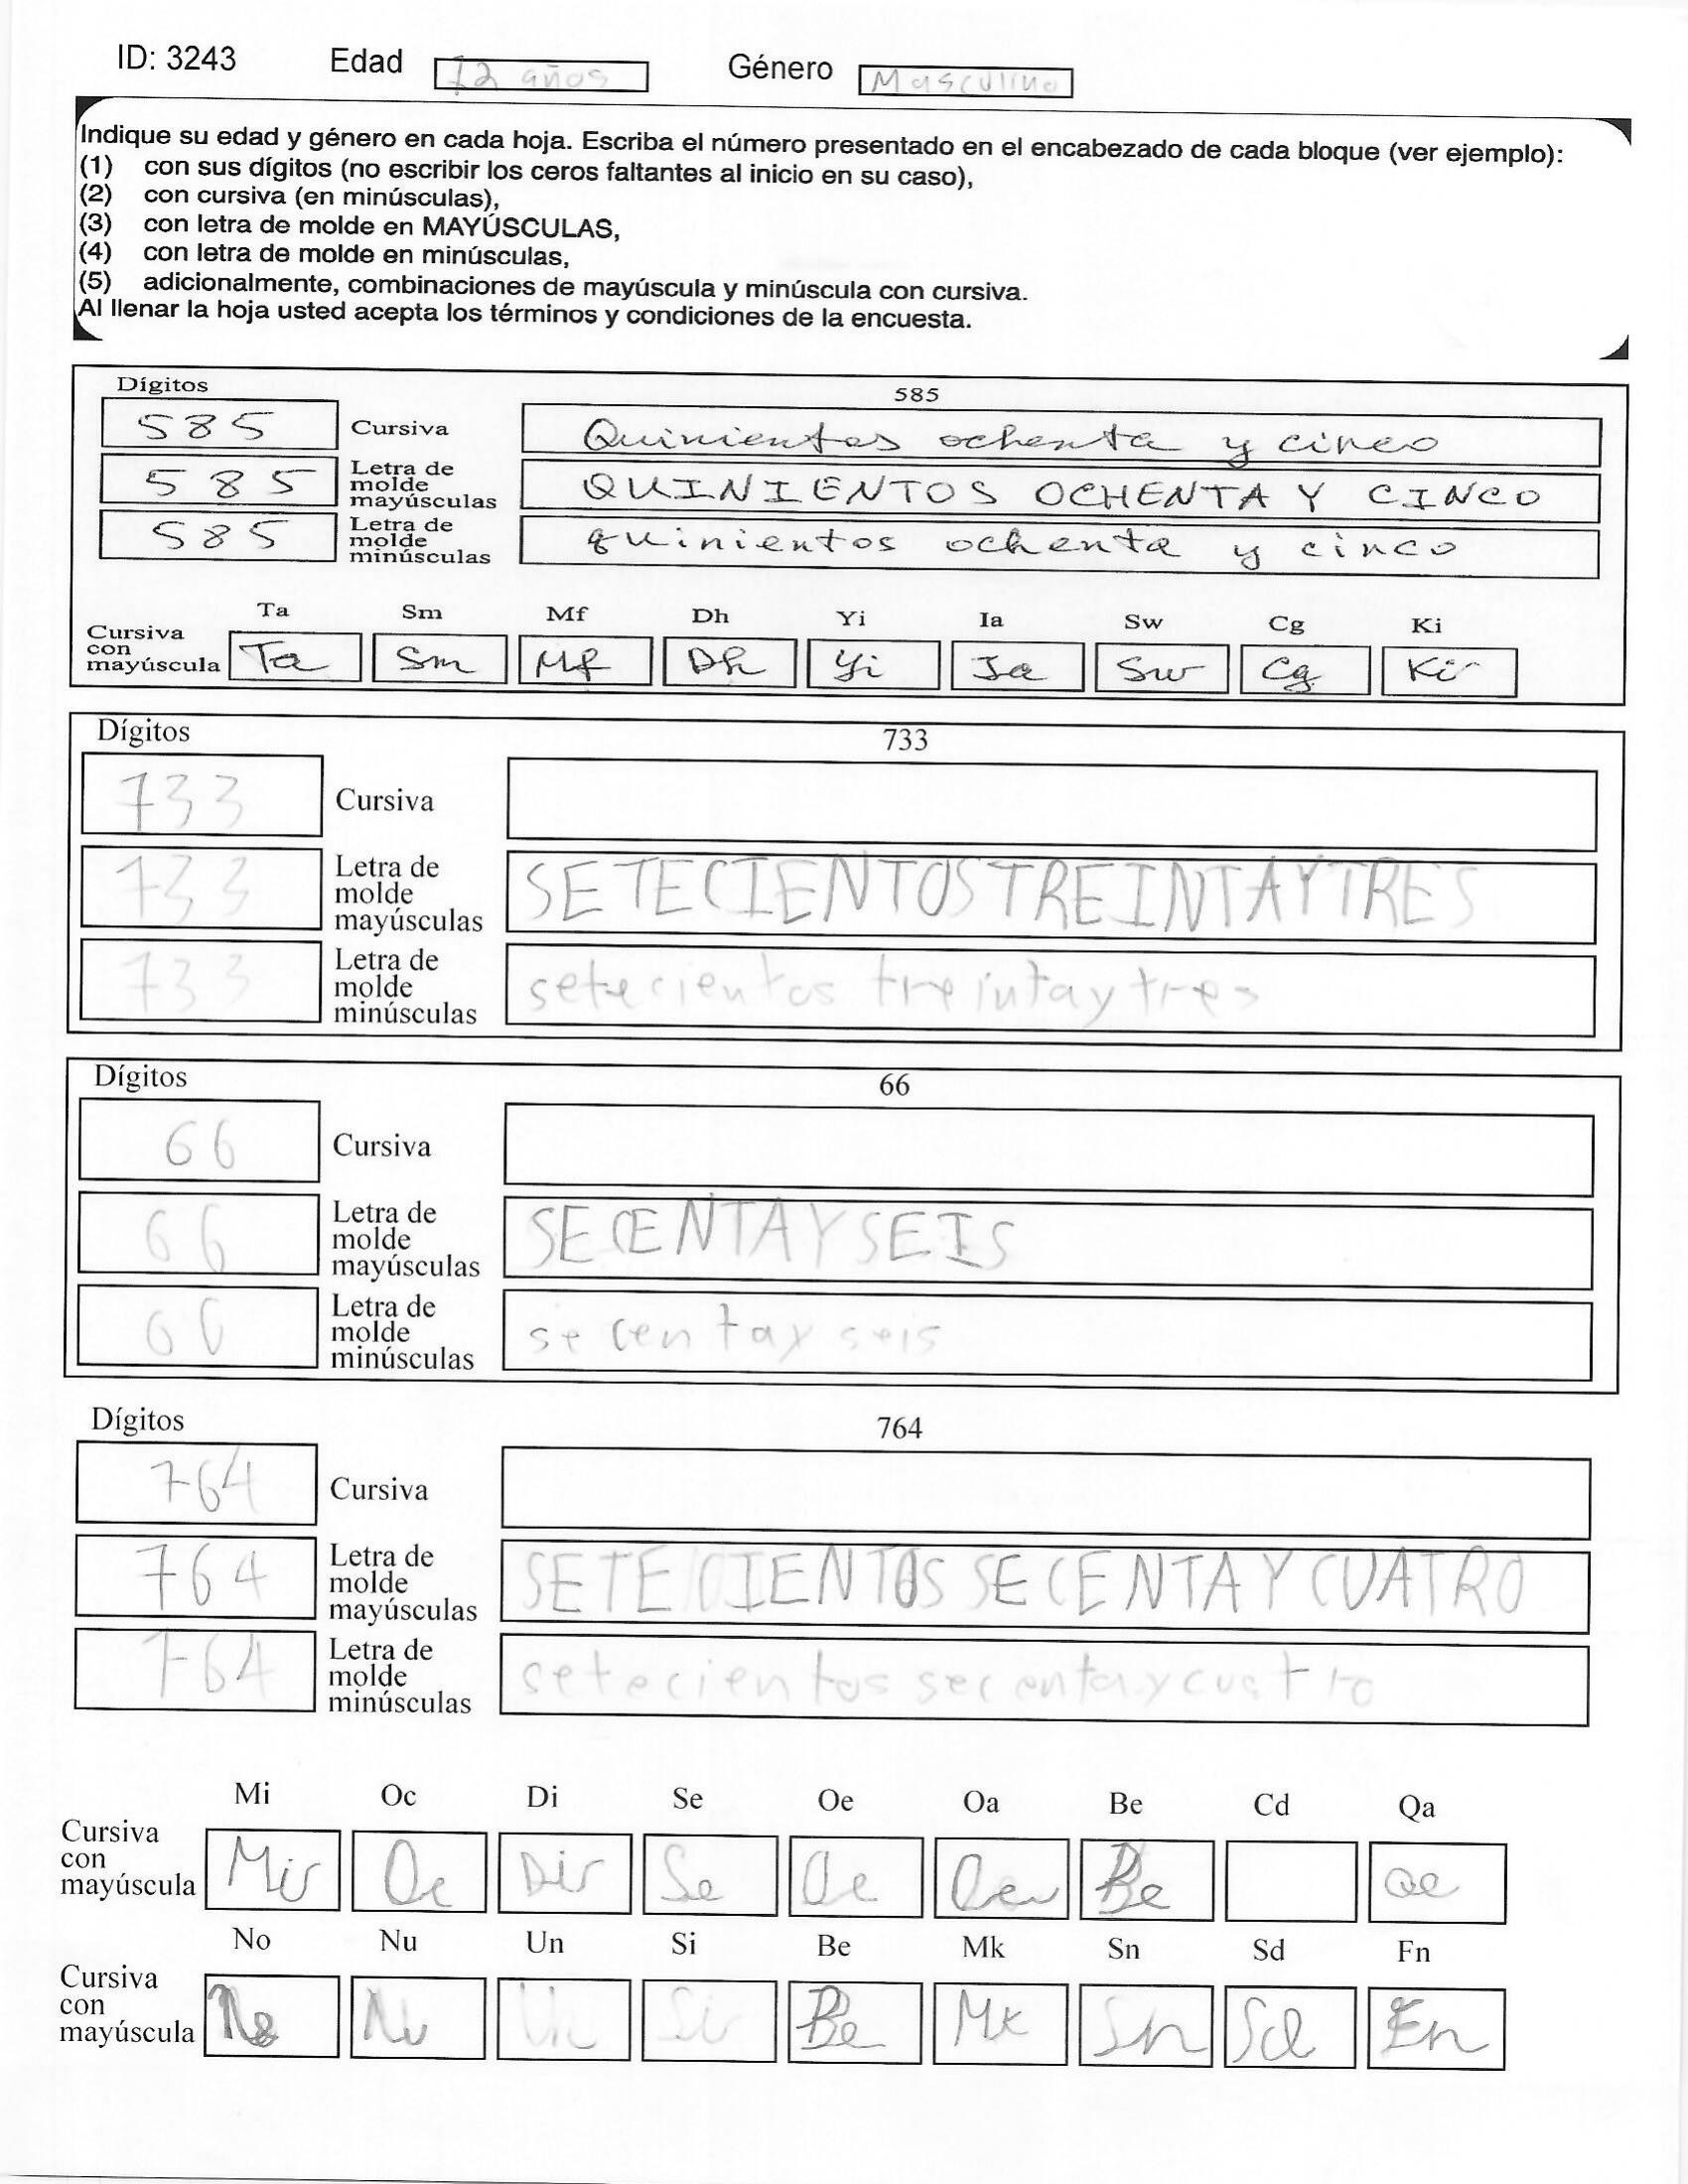 ID: 3243 Edad 12 años Género Masculino
Indique su edad y género en cada hoja. Escriba el número presentado en el encabezado de cada bloque (ver ejemplo):
(1) con sus dígitos (no escribir los ceros faltantes al inicio en su caso),
(2) con cursiva (en minúsculas),
(3) con letra de molde en MAYÚSCULAS,
(4) con letra de molde en minúsculas,
(5) adicionalmente, combinaciones de mayúscula y minúscula con cursiva.
Al llenar la hoja usted acepta los términos y condiciones de la encuesta.
Dígitos 585
585 Cursiva Quinientos ochenta y cinco
585 Letra de molde mayúsculas QUINIENTOS OCHENTA Y CINCO
585 Letra de molde minúsculas quinientos ochenta y cinco
Ta Sm Mf Dh Yi Ia Sw Cg Ki
Cursiva con mayúscula Ta Sm Mf Dh Yi Ia Sw Cg Ki
Dígitos 733
733 Cursiva
733 Letra de molde mayúsculas SETECIENTOS TREINTA Y TRES
733 Letra de molde minúsculas setecientos treinta y tres
Dígitos 66
66 Cursiva
66 Letra de molde mayúsculas SECENTA Y SEIS
66 Letra de molde minúsculas secenta y seis
Dígitos 764
764 Cursiva
764 Letra de molde mayúsculas SETECIENTOS SECENTA Y CUATRO
764 Letra de molde minúsculas setecientos secenta y cuatro
Mi Oc Di Se Oe Oa Be Cd Qa
Cursiva con mayúscula Mi Oc Di Se Oe Oa Be Qa
No Nu Un Si Be Mk Sn Sd Fn
Cursiva con mayúscula No Nu Un Si Be Mk Sn Sd Fn